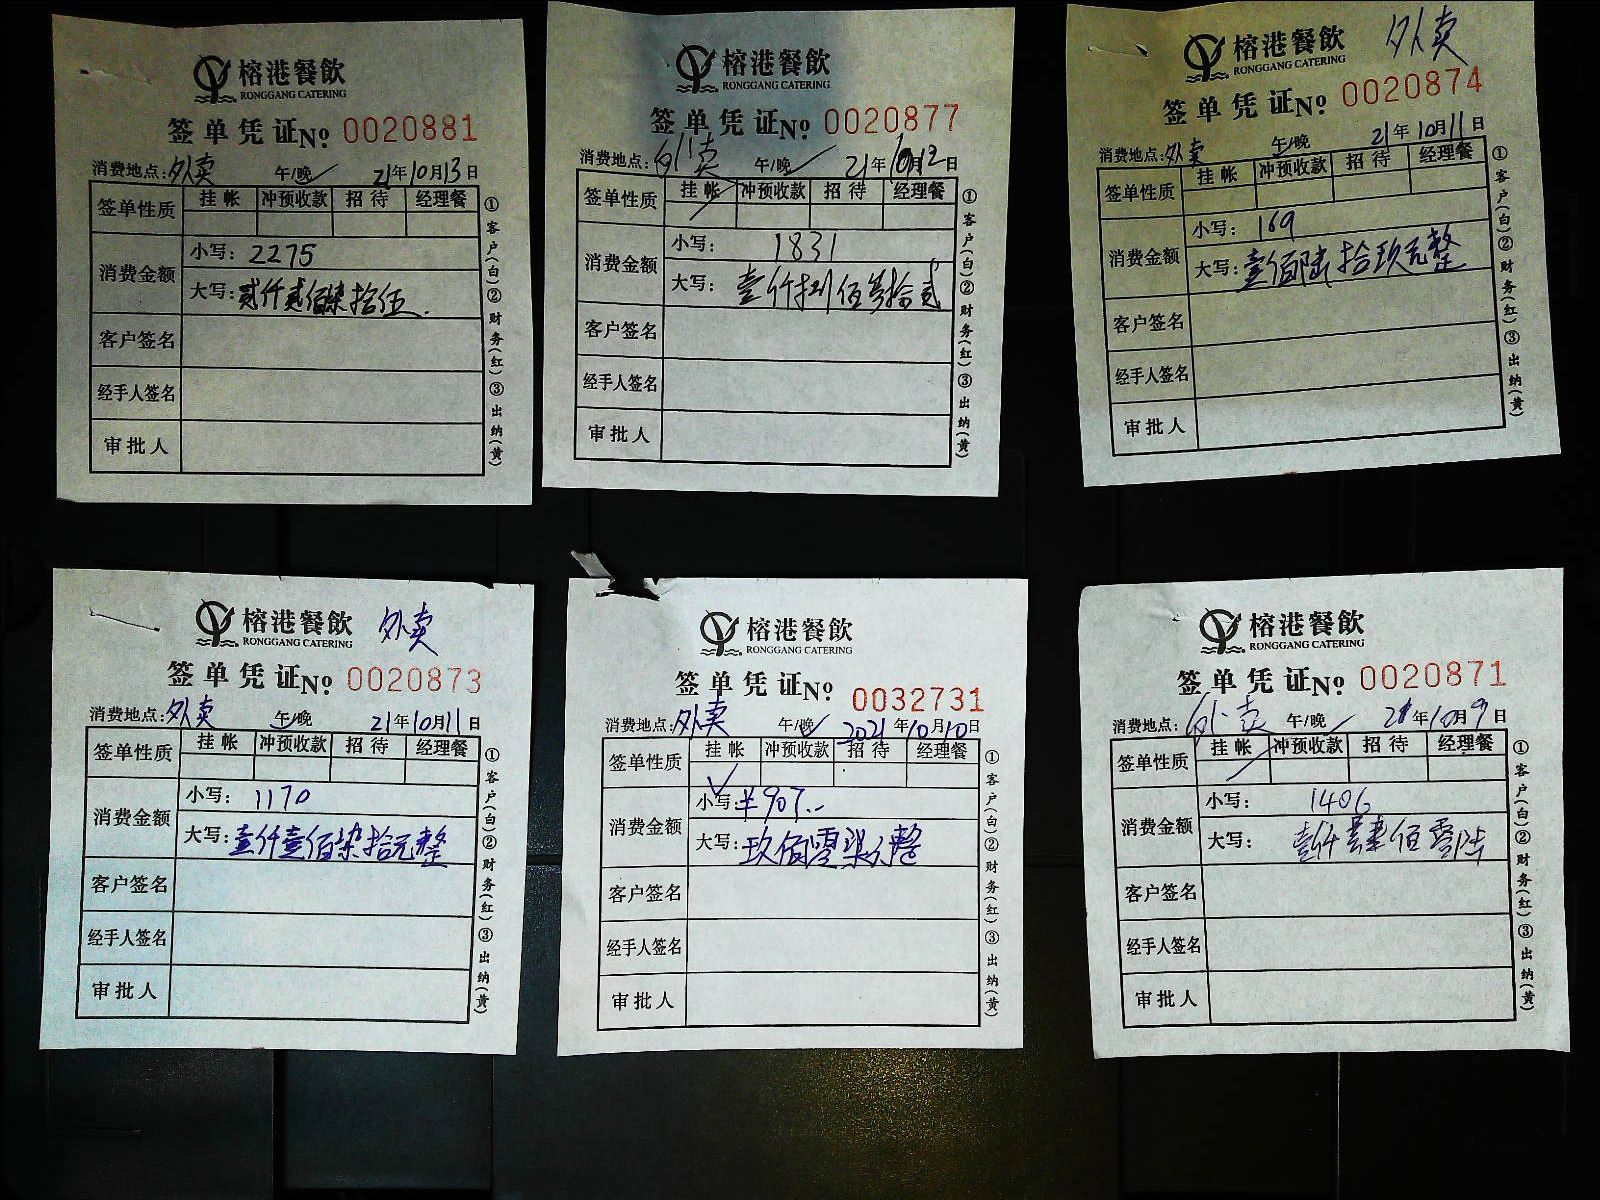 榕港餐飲
RONGGANG CATERING
签单凭证No 0020881
消费地点:外卖 午/晚 21年10月13日
签单性质 挂帐 冲预收款 招待 经理餐
消费金额 小写: 2275
大写: 贰仟贰佰柒拾伍.
客户签名
经手人签名
审批人
①客户(白)②财务(红)③出纳(黄)
榕港餐飲
RONGGANG CATERING
签单凭证No 0020877
消费地点:外卖 午/晚 21年10月12日
签单性质 挂帐 冲预收款 招待 经理餐
消费金额 小写: 1831
大写: 壹仟捌佰叁拾贰
客户签名
经手人签名
审批人
①客户(白)②财务(红)③出纳(黄)
外卖
榕港餐飲
RONGGANG CATERING
签单凭证No 0020874
消费地点:外卖 午/晚 21年10月11日
签单性质 挂帐 冲预收款 招待 经理餐
消费金额 小写: 169
大写:壹佰陆拾玖元整
客户签名
经手人签名
审批人
①客户(白)②财务(红)③出纳(黄)
榕港餐飲 外卖
RONGGANG CATERING
签单凭证No 0020873
消费地点:外卖 午/晚 21年10月11日
签单性质 挂帐 冲预收款 招待 经理餐
消费金额 小写: 1170
大写:壹仟壹佰柒拾元整
客户签名
经手人签名
审批人
①客户(白)②财务(红)③出纳(黄)
榕港餐飲
RONGGANG CATERING
签单凭证No 0032731
消费地点:外卖 午/晚 2021年10月10日
签单性质 挂帐 冲预收款 招待 经理餐
消费金额 小写:¥907.--
大写:玖佰零柒元整
客户签名
经手人签名
审批人
①客户(白)②财务(红)③出纳(黄)
榕港餐飲
RONGGANG CATERING
签单凭证No 0020871
消费地点:外卖 午/晚 21年10月9日
签单性质 挂帐 冲预收款 招待 经理餐
消费金额 小写: 1406
大写: 壹仟肆佰零陆
客户签名
经手人签名
审批人
①客户(白)②财务(红)③出纳(黄)